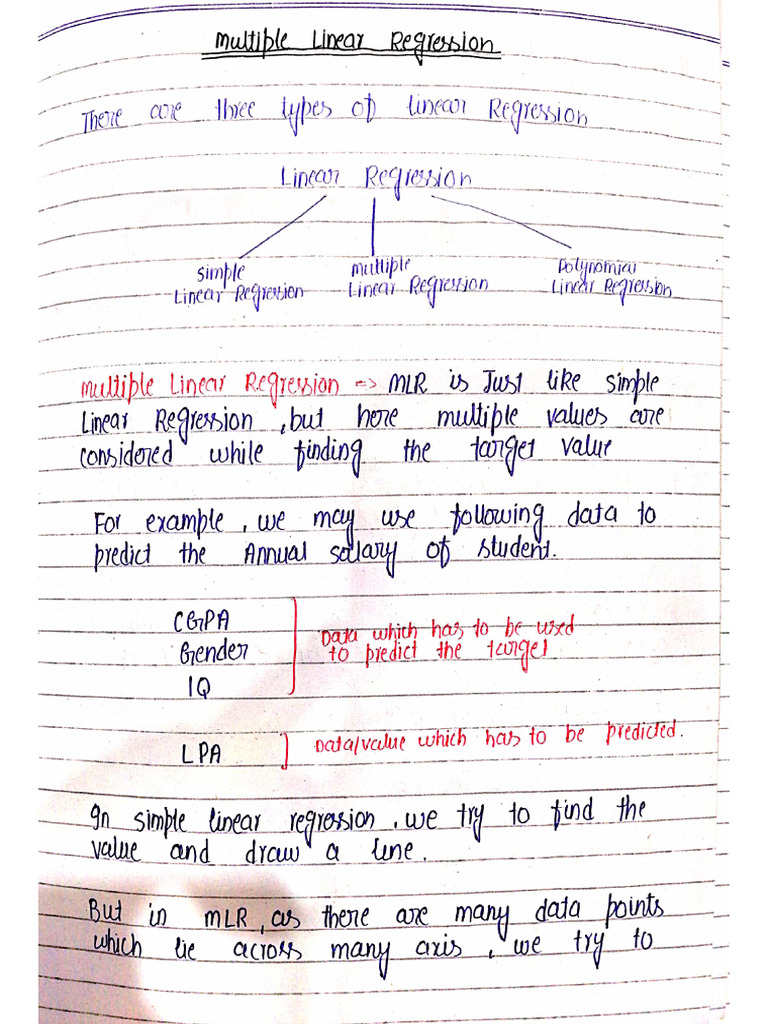 Multiple Linear Regression
There are three types of Linear Regression
Linear Regression
Simple Linear Regression
Multiple Linear Regression
Polynomial Linear Regression
Multiple Linear Regression => MLR is Just like simple
Linear Regression, but here multiple values are
considered while finding the target value
For example, we may use following data to
predict the Annual salary of student.
CGPA
Gender
IQ
Data which has to be used
to predict the target
LPA
Data/value which has to be predicted.
In simple linear regression, we try to find the
value and draw a line.
But in MLR, as there are many data points
which lie across many axis, we try to